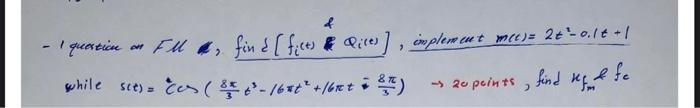 - 1 question on FM , find [ fi(t) & Qi(t) ] , implement m(t) = 2t² - 0.1t + 1
while s(t) = cos ( 8π/3 t³ - 16πt² + 16πt 8π/3 ) → 20 points , find & fc